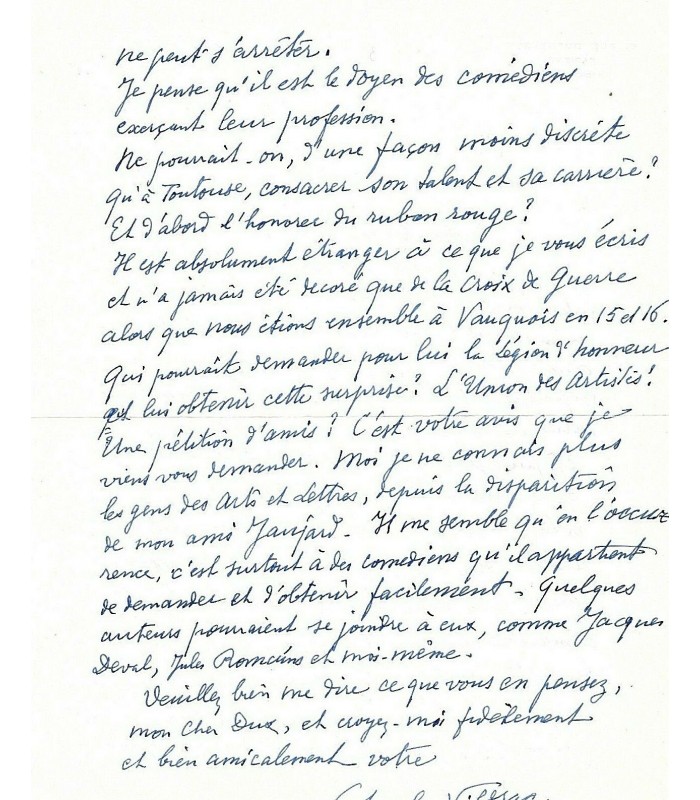 ne peut s'arrêter.
Je pense qu'il est le doyen des comédiens
exerçant leur profession.
Ne pourrait-on, d'une façon moins discrète
qu'à Toulouse, consacrer son talent et sa carrière ?
Et d'abord l'honorer du ruban rouge ?
Il est absolument étranger à ce que je vous écris
et n'a jamais été décoré que de la Croix de Guerre
alors que nous étions ensemble à Vauquois en 15 et 16.
Qui pourrait demander pour lui la Légion d'honneur
et lui obtenir cette surprise ? L'Union des Artistes !
Une pétition d'amis ? C'est votre avis que je
viens vous demander. Moi je ne connais plus
les gens des Arts et Lettres, depuis la disparition
de mon ami Jaujard. Il me semble qu'en l'occur
rence, c'est surtout à des comédiens qu'il appartient
de demander et d'obtenir facilement. Quelques
auteurs pourraient se joindre à eux, comme Jacques
Deval, Jules Romains et moi-même.
Veuillez bien me dire ce que vous en pensez,
mon cher Dux, et croyez-moi fidèlement
et bien amicalement votre